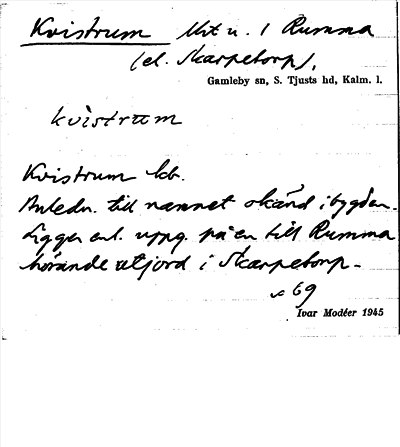 Kvistrum Utt u. 1 Rumma
(el. Skarpetorp).
Gamleby sn, S. Tjusts hd, Kalm. l.
kvìstrum
Kvistrum lob.
Anledn. till namnet okänd i bygden.
Ligger enl. uppg. på en till Rumma
hörande utjord i Skarpetorp.
s 69
Ivar Modéer 1945